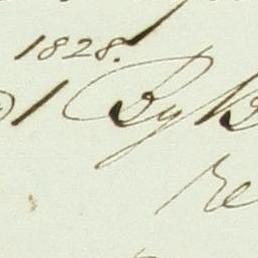 1828.
1 By B
Re